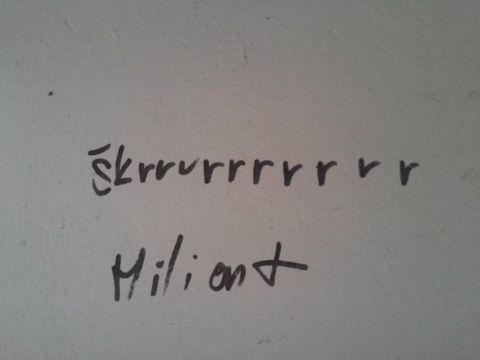 Škrrurrrrrrr
Miliont